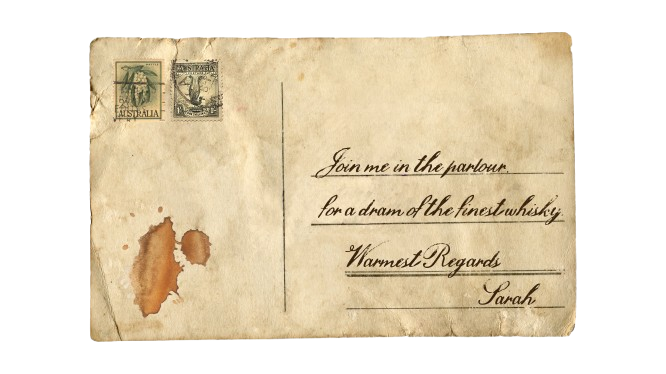 AUSTRALIA
AUSTRALIA
Join me in the parlour,
for a dram of the finest whisky.
Warmest Regards
Sarah